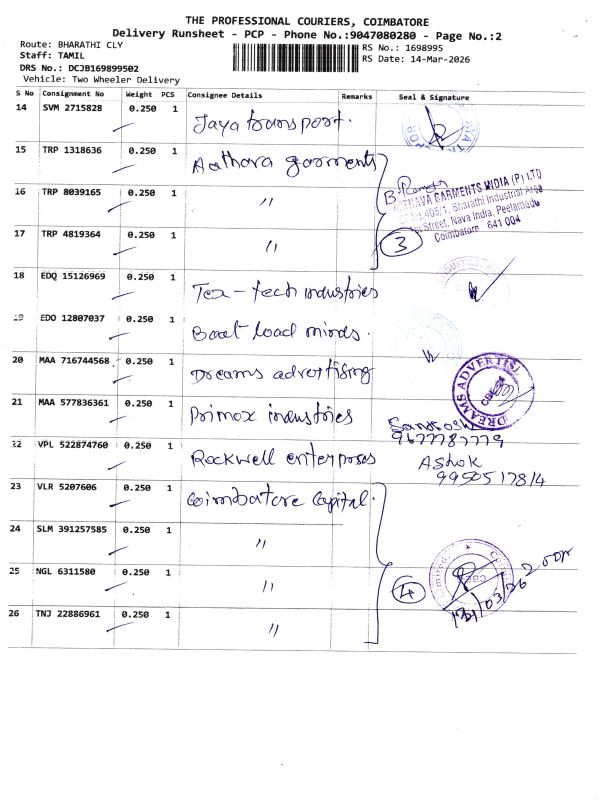 THE PROFESSIONAL COURIERS, COIMBATORE
Delivery Runsheet - PCP - Phone No.:9047080280 - Page No.:2
Route: BHARATHI CLY
Staff: TAMIL
DRS No.: DCJB169899502
Vehicle: Two Wheeler Delivery
RS No.: 1698995
RS Date: 14-Mar-2026
S No Consignment No Weight PCS Consignee Details Remarks Seal & Signature
14 SVM 2715828 0.250 1 Jaya transport.
15 TRP 1318636 0.250 1 Aathava garments
16 TRP 8039165 0.250 1 〃
17 TRP 4819364 0.250 1 〃
3
ATHAVA GARMENTS INDIA (P) LTD
405/1, Bharathi Industrial Area
Street, Nava India, Peelamedu
Coimbatore 641 004
18 EDQ 15126969 0.250 1 Tex-tech industries
19 EDO 12807037 0.250 1 Boat load minds.
20 MAA 716744568 0.250 1 Dreams advertising
DREAMS ADVERTISI
CBE
21 MAA 577836361 0.250 1 Primox industries
Santosh
9677787779
22 VPL 522874760 0.250 1 Rockwell enterposes
Ashok
9950517814
23 VLR 5207606 0.250 1 Coimbatore Capital.
24 SLM 391257585 0.250 1 〃
25 NGL 6311580 0.250 1 〃
26 TNJ 22886961 0.250 1 〃
4